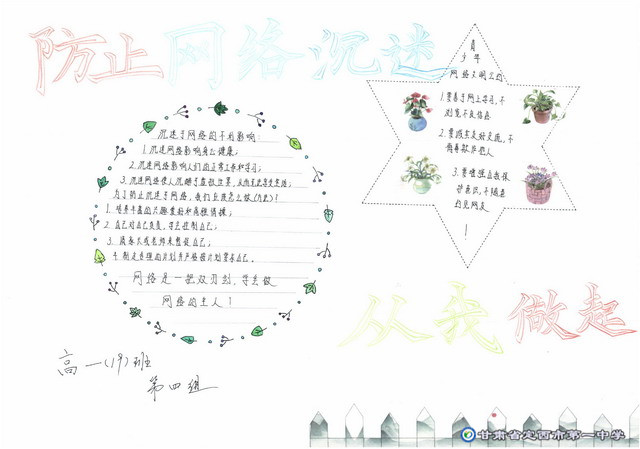 防止网络沉迷
沉迷于网络的不利影响:
1.沉迷网络影响身心健康;
2.沉迷网络影响人们的正常工作和学习;
3.沉迷网络使人沉醉于虚拟世界,从而無視现实生活;
为了防止沉迷于网络,我们应该怎么做(方法)?
1.培养丰富的兴趣爱好和高雅情操;
2.自己对自己负责,学会控制自己;
3.请家长或老师来督促自己;
4.制定合理的计划并严格按计划要求自己。
网络是一把双刃剑,学会做
网络的主人!
青
少年
网络文明公约
1.要善于网上学习,不
浏览不良信息
2.要诚实友好交流,不
侮辱欺诈他人
3.要增强自我保
护意识,不随意
约见网友
!
从我做起
高一(19)班
第四组
甘肃省定西市第一中学